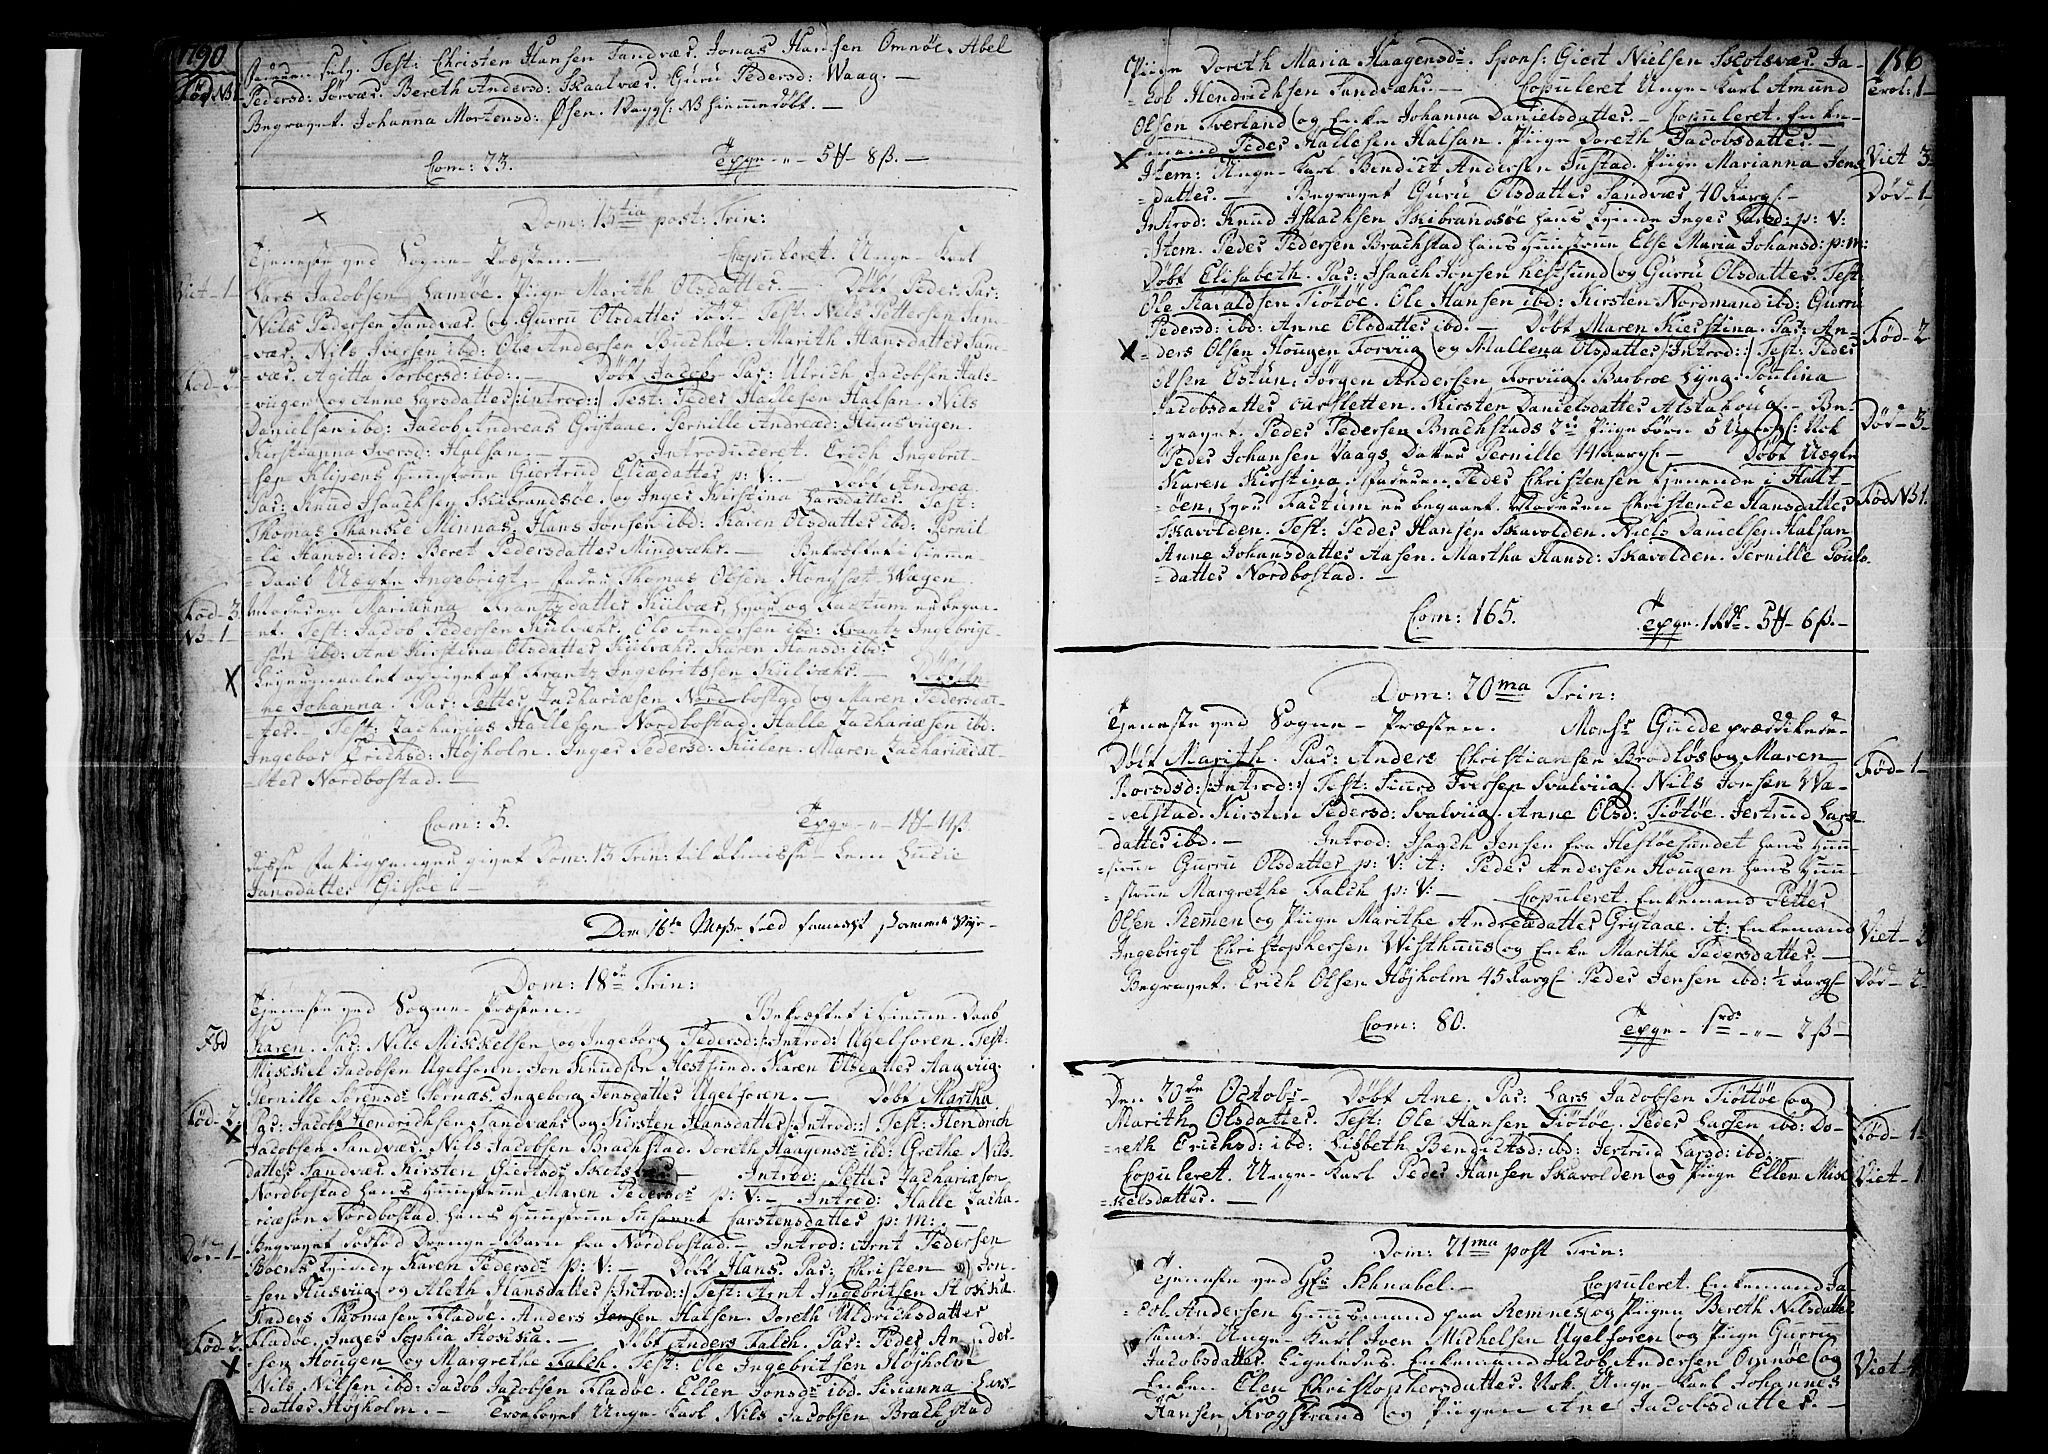 1790
Test: Christen Hansen Sandvær. Jonas Hansen Omnöe. Abel
Fød NB 1
Pedersd: Sørvær. Bereth Andersd: Skaalvær. Guru Pedersd: Waag. —
Begravet. Johanna Mortensd: Øsen. 1 Dag gl: NB hiemmedøbt. —
Com: 23. Texgr - „ - 5 ℔ - 8 ß. —
Dom: 15tia post: Trin:
Tieneste ved Sogne-Præsten. — Copuleret. Unge-Karl
Viet - 1 - Lars Jacobsen Pige Marith Olsdatter. — Døbt Peder. Par:
Nils Pedersen Sandvær. og Gurru Olsdatter Test: Nils Pettersen San-
vær. Nils Iversen ibd: Ole Andersen Marith Hansdatter San-
vær. Agitta Torbersd: ibd: — Døbt Jacob. Par: Ulrich Jacobsen Hals-
viigen og Anne Larsdatter /:introd:/ Test: Peder Hallesen Halsan. Nils
Danielsen ibd: Jacob Andreas Grytaae. Pernille Andreæd: Huusviigen.
Kirstianna Iversd: Halsan. — Introduceret. Erich Ingebrit-
sen Klipens Huustrue Giertrud Eliædatter p: V: — Døbt Andrea
Par: Knud Isaachsen Skibrandsöe. og Inger Kirstina Larsdatter. Test:
Thomas Hansen Minnas. Hans Jonsen ibd: Karen Olsdatter ibd: Pernil-
le Hansd: ibd: Beret Pedersdatter Mindvæhr. — Bekræftet i Hieme-
Daab Uægte Ingebrigt. Fader Thomas Olsen
Fød - 3 Moderen Marianna Frantzdatter Kulvær, hvor og Factum er begaa-
NB - 1 et. Test: Jacob Pedersen Kulvæhr. Ole Andersen ibd: Frantz Ingebrigt-
sen ibd: Ane Kirstina Olsdatter Kulvæhr. Karen Hansd: ibd:
X af Frantz Ingebritsen Kulvæhr. — Døbt An-
ne Johanna. Par: Petter Zachariæsen Nordbostad og Maren Pedersdat-
ter. — Test: Zacharius Hallesen Nordbostad. Halle Zachariæsen ibd.
Ingebor Erichsd: Höjholm. Inger Pedersd: Kulen. Maren Zachariædat-
ter Nordbostad. —
Com: 5. Texgr - „ - 1 ℔ - 14 ß
disse givet Dom: 13 Trin: til Lem Lucie
Jansdatter —
Dom: 18de Trin:
Tieneste ved Sogne-Præsten. — Bekræftet i Hieme-Daab
Fød Karen. Par: Nils Mickelsen og Ingeborg Pedersd: /:Introd:/ Ugelforen. Test:
Mickel Jacobsen Ugelforen. Jon Knudsen Hestsund. Karen Olsdatter Haavig.
Pernille Sörensd: Ingeborg Jensdatter Ugelforen. — Døbt Martha
Fød - 2 Par: Jacob Hendrichsen Sandvæhr og Kirsten Hansdatter /:Introd:/ Test: Hendrich
X Jacobsen Sandvær. Nils Jacobsen Brachstad. Doreth Haagensd: ibd: Grethe Nils-
datter Sandvær. Kirsten Giertsd: Skotsvær. — Introd: Petter Zachariæsen
Nordbostad hans Huustrue Maren Pedersd: p: V: — Introd: Halle Zacha-
riæsen Nordbostad hans Huustrue Susanna Carstensdatter p: M: —
Død - 1 Begravet dødfød Drenge-Barn fra Nordbostad. — Introd: Arnt Pedersen
Boens Qvinde Karen Pedersd: p: V: — Døbt Hans. Par: Christen Jon-
sen Husviig og Aleth Hansdatter /:Introd:/ Test: Arnt Ingebritsen
Anders Thomasen Fladöe. Anders Jensen Halsen. Doreth Uldrichsdatter
Fød - 2 Fladöe. Inger Sophia — Døbt Anders Falch. Par: Peder Ander-
X sen Hougen og Margrethe Falch. Test: Ole Ingebritsen Höjholm
Nils Nilsen ibd: Jacob Jacobsen Fladöe. Ellen Jonsd: ibd. Susanna Lars-
datter Höjholm. — Trolovet Unge-Karl Nils Jacobsen Brachstad
156
Pige Doreth Maria Haagensd: Spons: Giert Nielsen Skotsvær. Ja-
cob Hendrichsen Sandvæhr. — Copuleret Unge-Karl Amund Trol: 1
Olsen Tverland og Enke Johanna Danielsdatter. — Copuleret. Enke-
mand Peder Hallesen Halsan. Pige Doreth Jacobsdatter. —
X Item: Unge-Karl Bendict Andersen Tustad. Pige Marianna Jens- Viet - 3
datter. — Begravet Guru Olsdatter Sandvær 40 Aar gl. — Død - 1
Introd: Knud Isaachsen Skibrandsöe hans Qvinde Inger Larsd: p: V:
Item. Peder Pedersen Brachstad hans Huustrue Else Maria Johansd: p: m:
Døbt Elisabeth. Par: Isaach Jonsen Hestsund og Gurru Olsdatter. Test:
Ole Haraldsen Tiötöe. Ole Hansen ibd: Kirsten Nordmand ibd: Gurru
Pedersd: ibd: Anne Olsdatter ibd. — Døbt Maren Kierstina. Par: An-
X ders Olsen Hougen Forviig og Mallena Olsdatter /:Introd:/ Test: Peder Fød - 2
Olsen Estun. Jörgen Andersen Forviig. Barbroe Lyng. Poulina
Jacobsdatter Kirsten Danielsdatter Alstahoug. — Be-
gravet. Peder Pedersen Brachstads Pige Børn 5 Uger gl: Nok Død - 3
Peder Johansen Vaags Datter Pernille 14 Aar gl. — Døbt Uægte
Karen Kirstina. Faderen Peder Christensen tienende i Halt-
öen, hvor Factum er begaaet. Moderen Christence Hansdatter Fød NB 1.
Skavolden. Test: Peder Hansen Skavolden. Niels Danielsen Halsan
Anne Johansdatter Aasen. Martha Hansd: Skavolden. Pernille Pouls-
datter Nordbostad. —
Com: 165. Texgr - 1 Rdr. 5 ℔ - 6 ß. —
Dom: 20ma Trin:
Tieneste ved Sogne-Præsten. Monsr Gudde prædikede.
Døbt Marith. Par: Anders Christiansen Brodløs og Maren Fød - 1
Borsdsd: /:Introd:/ Test: Siurd Iversen Svalviig. Nils Jonsen Wa-
velstad. Kirsten Pedersd: Svalviig. Anne Olsd: Tiötöe. Jertrud Lars-
datter ibd. — Introd: Isach Jensen fra Hestöesundet hans Huu-
strue Gurru Olsdatter p: V: it: Peder Andersen Hougen hans Huu-
strue Margrethe Falch p: V: — Copuleret. Enkemand Petter
Olsen Remen og Pige Marithe Andreædatter Grytaae. it: Enkemand Viet - 2
Ingebrigt Christophersen Wisthuus og Enke Marithe Pedersdatter. —
Begravet. Erich Olsen Höjholm 45 Aar gl. Peder Jensen ibd: ½ Aar gl. Død - 2
Com: 80. Texgr - 1 rdr - „ - 2 ß —
Den 20de Octobr. Døbt Ane. Par: Lars Jacobsen Tiöttöe og
Marith Olsdatter. Test: Ole Hansen Tiötöe. Peder Larsen ibd: Do- Fød - 1
reth Erichsd: ibd: Lisbeth Bendictsd: ibd: Jertrud Larsd: ibd:
Copuleret. Unge-Karl Peder Hansen Skavolden og Pige Ellen Mik- Viet - 1
kelsdatter. —
Dom: 21ma post Trin:
Tieneste ved Hr Schnabel. — Copuleret. Enkemand Ja-
cob Andersen Huusmand paa Remnes og Pigen Bereth Nilsdatter
samt Unge-Karl Joen Michelsen Ugelforen og Pige Gurru
Jacobsdatter. Ligeledes. Enkemand Jacob Andersen Omnöe og Viet - 4
Enken Elen Christophersdatter. Nok. Unge-Karl Johannes
Hansen Krogstrand og Pigen Ane Jacobsdatter. —